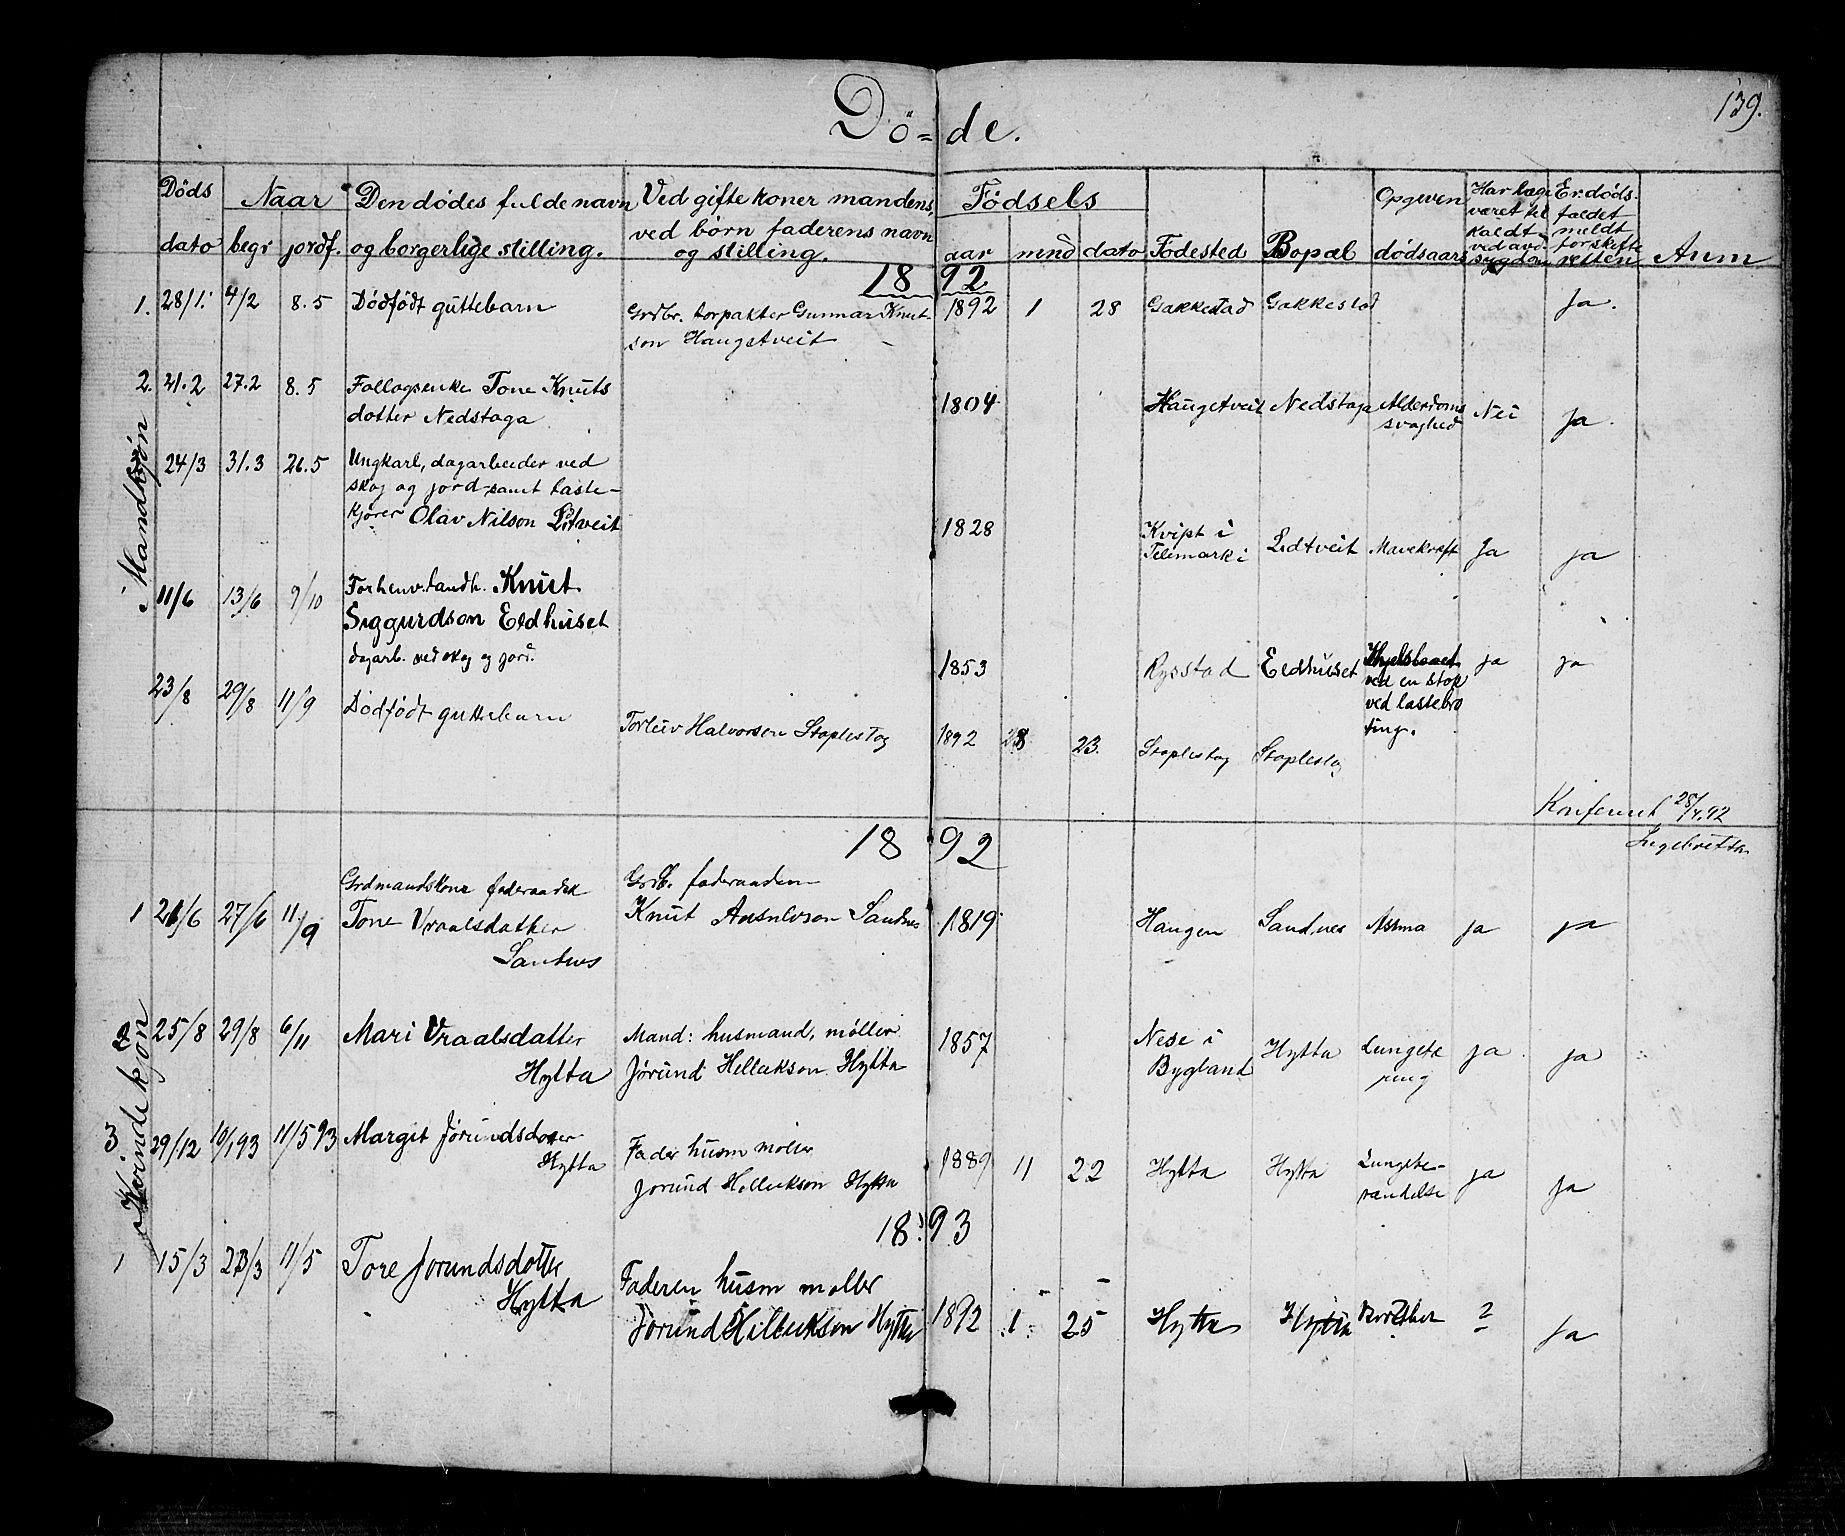 Dö= de.
139.
Döds dato
Naar begr jordf.
Den dödes fulde navn og borgerlige stilling.
Ved gifte koner mandens, ved børn faderens navn og stilling.
Födsels aar mnd dato
Födested
Bopæl
Opgiven dödsaars
Har læge været til kaldt ved avd. sygdom
Er döds- faldet meldt for skifte retten
Anm
18 92
Mandkjön
1. 28/1. 4/2 8.5 Dödfödt guttebarn
Grdbr. torpakter Gunnar Knut-
son Haugetveit
1892 1 28 Gakkestad Gakkestad Ja.
2. 21.2 27.2 8.5 Follogsenke Tone Knuts
dotter Nedstaga
1804 Haugetveit Nedstaga Alderdoms
svaghed Nei Ja.
24/3 31.3 26.5 Ungkarl, dagarbeider ved
skog og jord-samt laste-
kjörer Olav Nilson Lidtveit
1828 Kvipt i
Telemarki Lidtveit Mavekræft Ja ja
11/6 13/6 9/10 Forhenv. handh. Knut
Siggurdson Eldhuset
dagarb. ved skog og jord.
1853 Rysstad Eldhuset
ved en stok
ved lastebrø
ting. ja ja
23/8 29/8 11/9 Dödfödt guttebarn
Torleiv Halvorsen Staplestog
1892 8 23. Staplestog Staplestog
Konferert 28/7.92
18 92
Kvindekjön
Grdmandskone föderaadsk
Grdb. föderaaden
1 21/6 27/6 11/9 Tone Vraalsdatter
Sandnes
Knut Aasulvson Sandnes
1819 Haugen Sandnes Astma ja ja
2 25/8 29/8 6/11 Mari Vraalsdatter
Hylta
Mand: husmand, møller
Jørund Helleikson Hylta
1857 Nese i
Bygland Hytta Lungetæ
ring ja ja
3 29/12 10/1 93 11/5 93 Margit Jørundsdotter
Hytta
Fader husm møller
Jorund Helleikson Hytta
1889 11 22 Hytta Hytta Lungebe-
tændelse ja ja
18 93
1 15/3 23/3 11/5 Tore Jorundsdotter
Hytta
Faderen husm moller
Jorund Helleikson Hytta
1892 1 25 Hytta Hytta ? ja